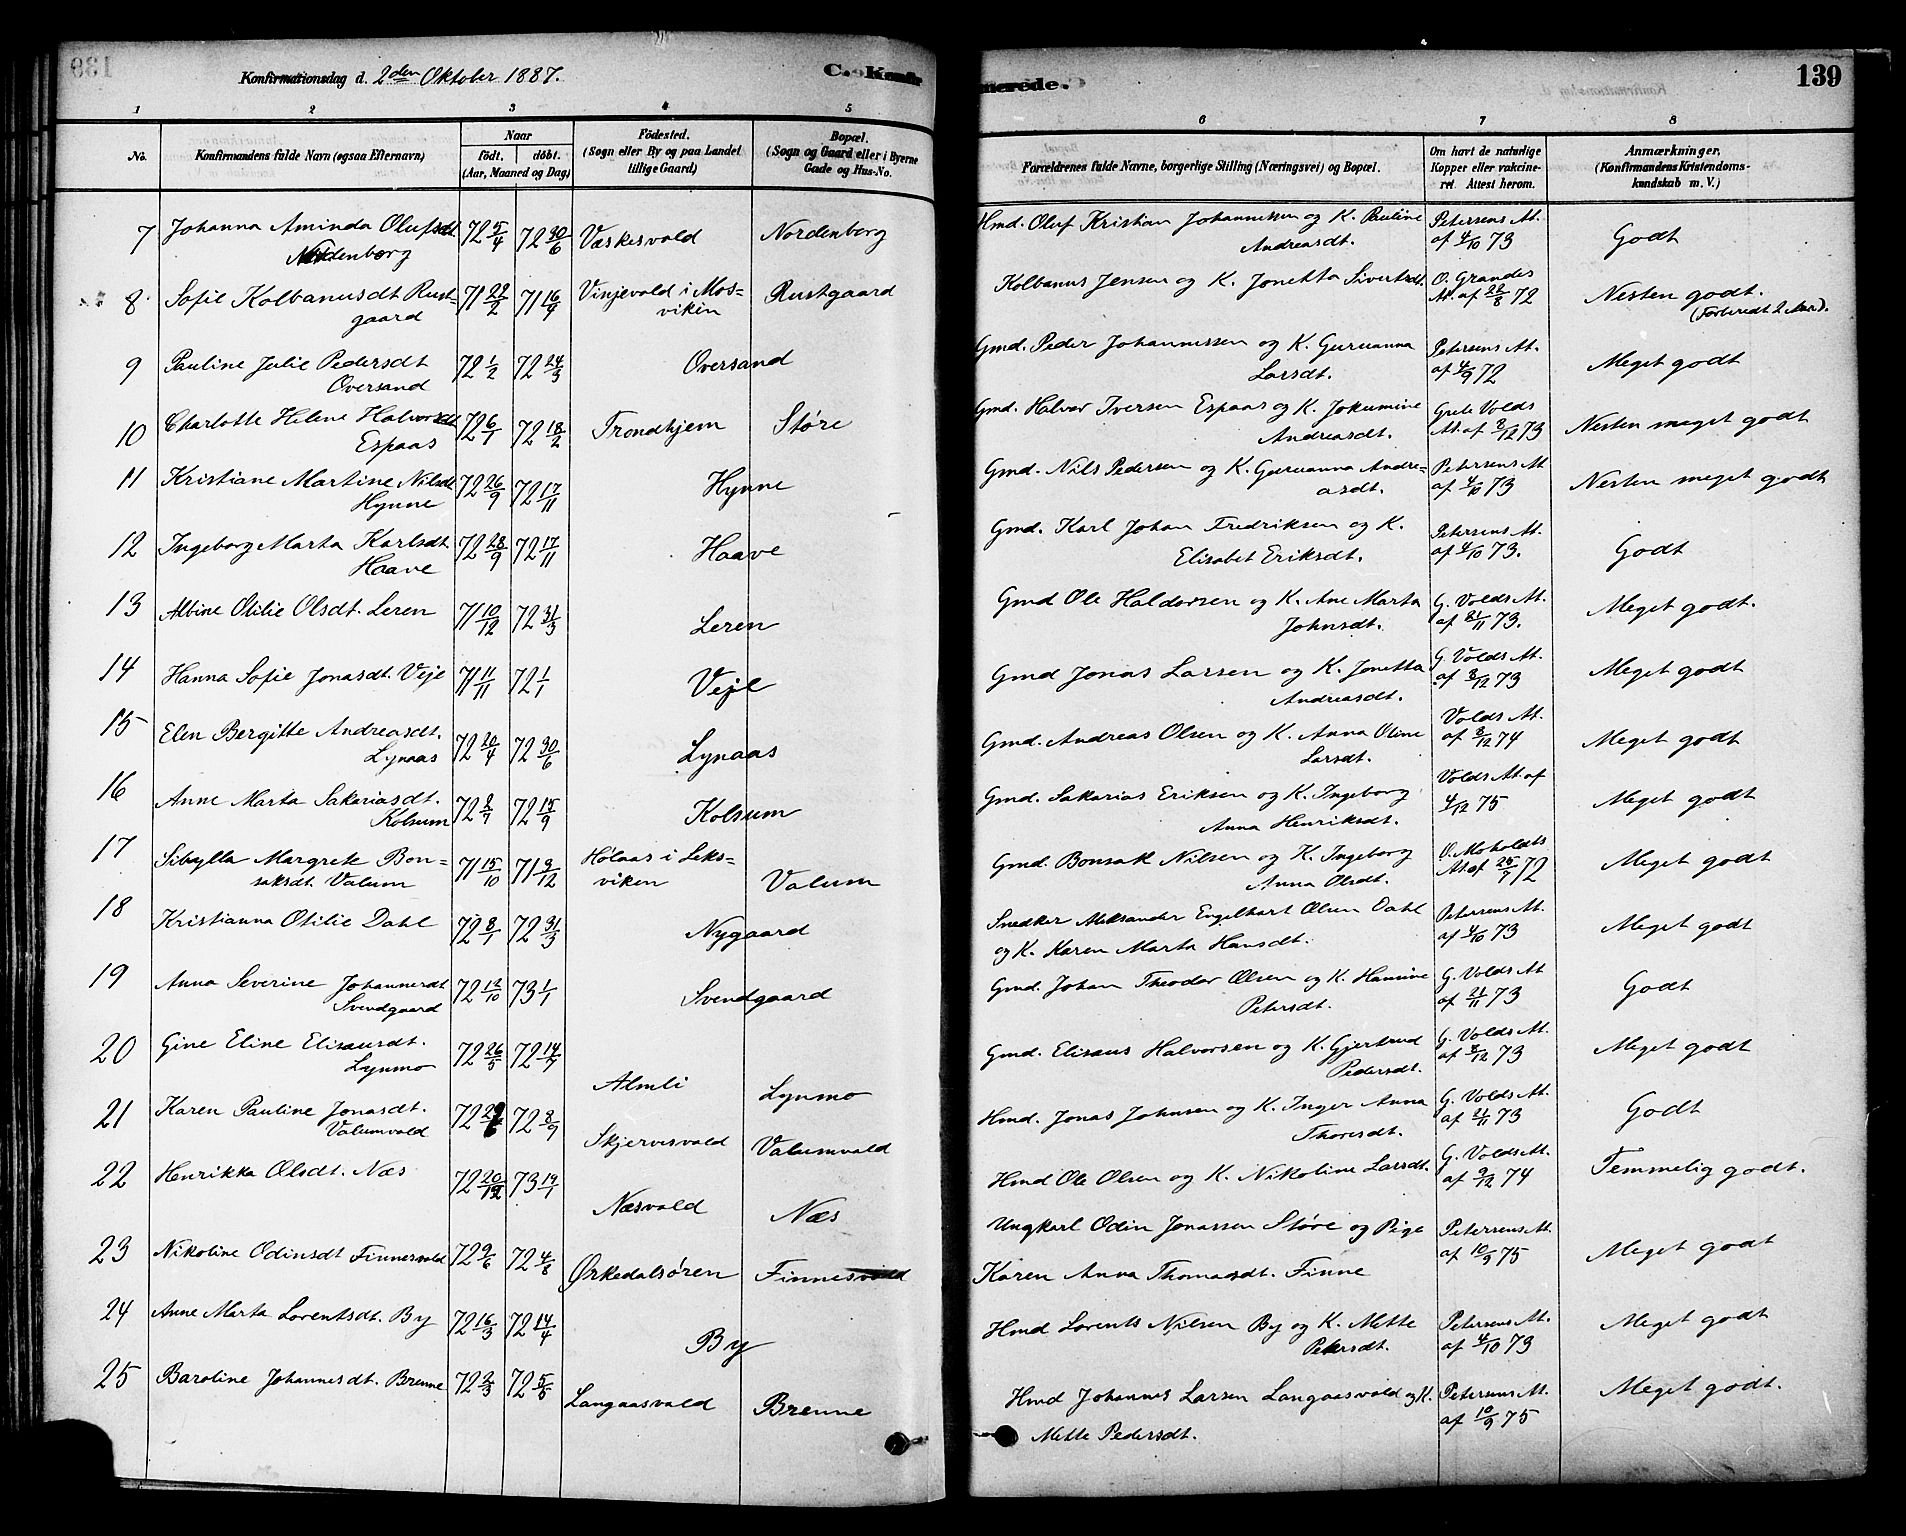 Konfirmationsdag d. 2den Oktober 1887.
C. Konfir
merede.
139
1 2 3 4 5 6 7 8
No.
Konfirmandens fulde Navn (ogsaa Efternavn)
Naar
født. døbt.
(Aar, Maaned og Dag)
Fødested.
(Sogn eller By og paa Landet
tillige Gaard)
Bopæl.
(Sogn og Gaard eller i Byerne
Gade og Hus-No.
Forældrenes fulde Navne, borgerlige Stilling (Næringsvei) og Bopæl.
Om havt de naturlige
Kopper eller vakcine-
ret. Attest herom.
Anmærkninger,
(Konfirmandens Kristendoms-
kundskab m. V.)
7 Johanna Aminda Olufsdt 72 5/4 72 30/6 Væskesvald Nordenborg Hmd. Oluf Kristian Johannessen og K. Pauline Petersens At. Godt
Nordenborg Andreasdt. af 4/10 73
8 Sofie Kolbanusdt Rust- 71 22/2 71 16/4 Vinjevald i Mos- Rustgaard Kolbanus Jensen og K. Jonetta Sivertsdt. O. Grandes Nesten godt.
gaard viken At. af 22/8 72 (Forberedt 2 Aar).
9 Pauline Julie Pedersdt 72 1/2 72 24/3 Oversand Gmd. Peder Johannessen og K. Guruanna Petersens At. Meget godt
Oversand Larsdt. af 4/9 72
10 Charlotte Helene Halvorsdt 72 6/1 72 18/2 Trondhjem Støre Gmd. Halvor Iversen Espaas og K. Jokumine Grete Volds Nesten meget godt
Espaas Andreasdt. At. af 8/12 73
11 Kristiane Martine Nilsdt 72 26/9 72 17/11 Hynne Gmd. Nils Pedersen og K. Guruanna Andre- Petersens At Nesten meget godt
Hynne asdt. af 4/10 73
12 Ingeborg Marta Karlsdt 72 28/9 72 17/11 Haave Gmd. Karl Johan Fredriksen og K. Petersens At. Godt
Haave Elisabet Eriksdt. af 4/10 73.
13 Albine Otilie Olsdt. Leren 71 10/12 72 31/3 Leren Gmd Ole Haldorsen og K. Ane Marta G. Volds At. Meget godt.
Johnsdt. af 21/11 73.
14 Hanna Sofie Jonasdt. Vejl 71 11/11 72 1/1 Vejl Gmd Jonas Larsen og K. Jonetta G. Volds At. Meget godt
Andreasdt. af 8/12 73
15 Elen Bergitte Andreasdt. 72 20/4 72 30/6 Lynaas Gmd. Andreas Olsen og K. Anna Oline Volds At. Meget godt
Lynaas Larsdt. af 8/12 74
16 Anne Marta Sakariasdt. 72 8/7 72 15/9 Kolsum Gmd. Sakarias Eriksen og K. Ingeborg Volds At. af Meget godt
Kolsum Anna Henriksdt. 4/12 75
17 Sibylla Margrete Bon- 71 15/10 71 9/12 Hølaas i Leks- Valum Gmd. Bonsak Nilsen og K. Ingeborg O. Moholdts Meget godt
saksdt. Valum viken Anna Olsdt. At. af 26/7 72
18 Kristianna Otilie Dahl 72 8/1 72 31/3 Nygaard Snedker Aleksander Engelhart Olsen Dahl Petersens At. Meget godt
og K. Karen Marta Hansdt. af 4/10 73
19 Anna Severine Johannesdt 72 12/10 73 1/1 Svendgaard Gmd. Johan Theodor Olsen og K. Hansine G. Volds At Godt
Svendgaard Petersdt. af 21/11 73
20 Gine Eline Elisæusdt. 72 26/5 72 14/7 Almli Lynmo Gmd. Elisæus Halvorsen og K. Gjertrud G. Volds At. Meget godt
Lynmo Pedersdt. af 8/12 73
21 Karen Pauline Jonasdt. 72 72 8/9 Skjervesvald Valumvald Hmd. Jonas Johnsen og K. Inger Anna G. Volds At. Godt
Valumvald Thoresdt. af 21/11 73
22 Henrikka Olsdt. Næs 72 20/12 73 19/1 Næsvald Næs Hmd Ole Olsen og K. Nikoline Larsdt. G. Volds At. Temmelig godt.
af 9/12 74
23 Nikoline Odinsdt Finnesvald 72 9/6 72 4/8 Ørkedalsøren Finnesvald Ungkarl Odin Jonassen Støre og Pige Petersens At. Meget godt
Karen Anna Thomasdt. Finne af 10/9 75
24 Anne Marta Lorentsdt. By 72 16/3 72 14/4 By Hmd Lorents Nilsen By og K. Mette Petersens At. Meget godt
Petersdt. af 4/10 73
25 Baroline Johannesdt. Brenne 72 2/3 72 5/5 Langaasvald Brenne Hmd Johannes Larsen Langaasvald og K. Petersens At. Meget godt.
Mette Pedersdt. af 10/9 75